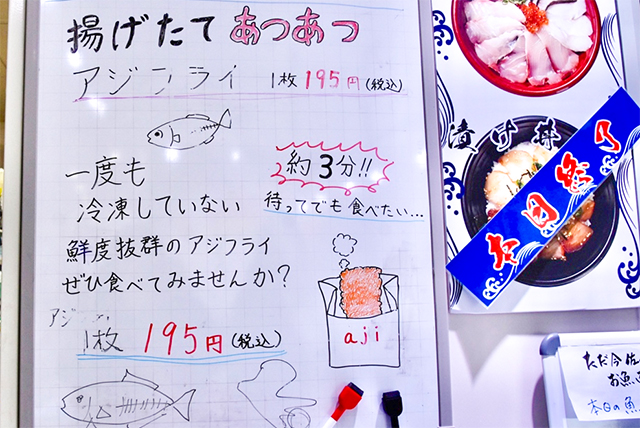 揚げたて あつあつ
アジフライ 1枚 195円(税込)
一度も
冷凍していない
約3分!!
待ってでも食べたい...
鮮度抜群のアジフライ
ぜひ食べてみませんか?
アジ
1枚 195円(税込)
aji
漬け丼
本日終了
ただ今佐
お魚
本日の魚